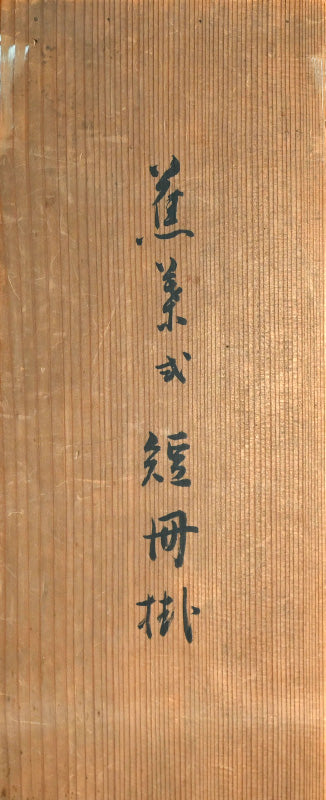 蕉葉式 短冊掛